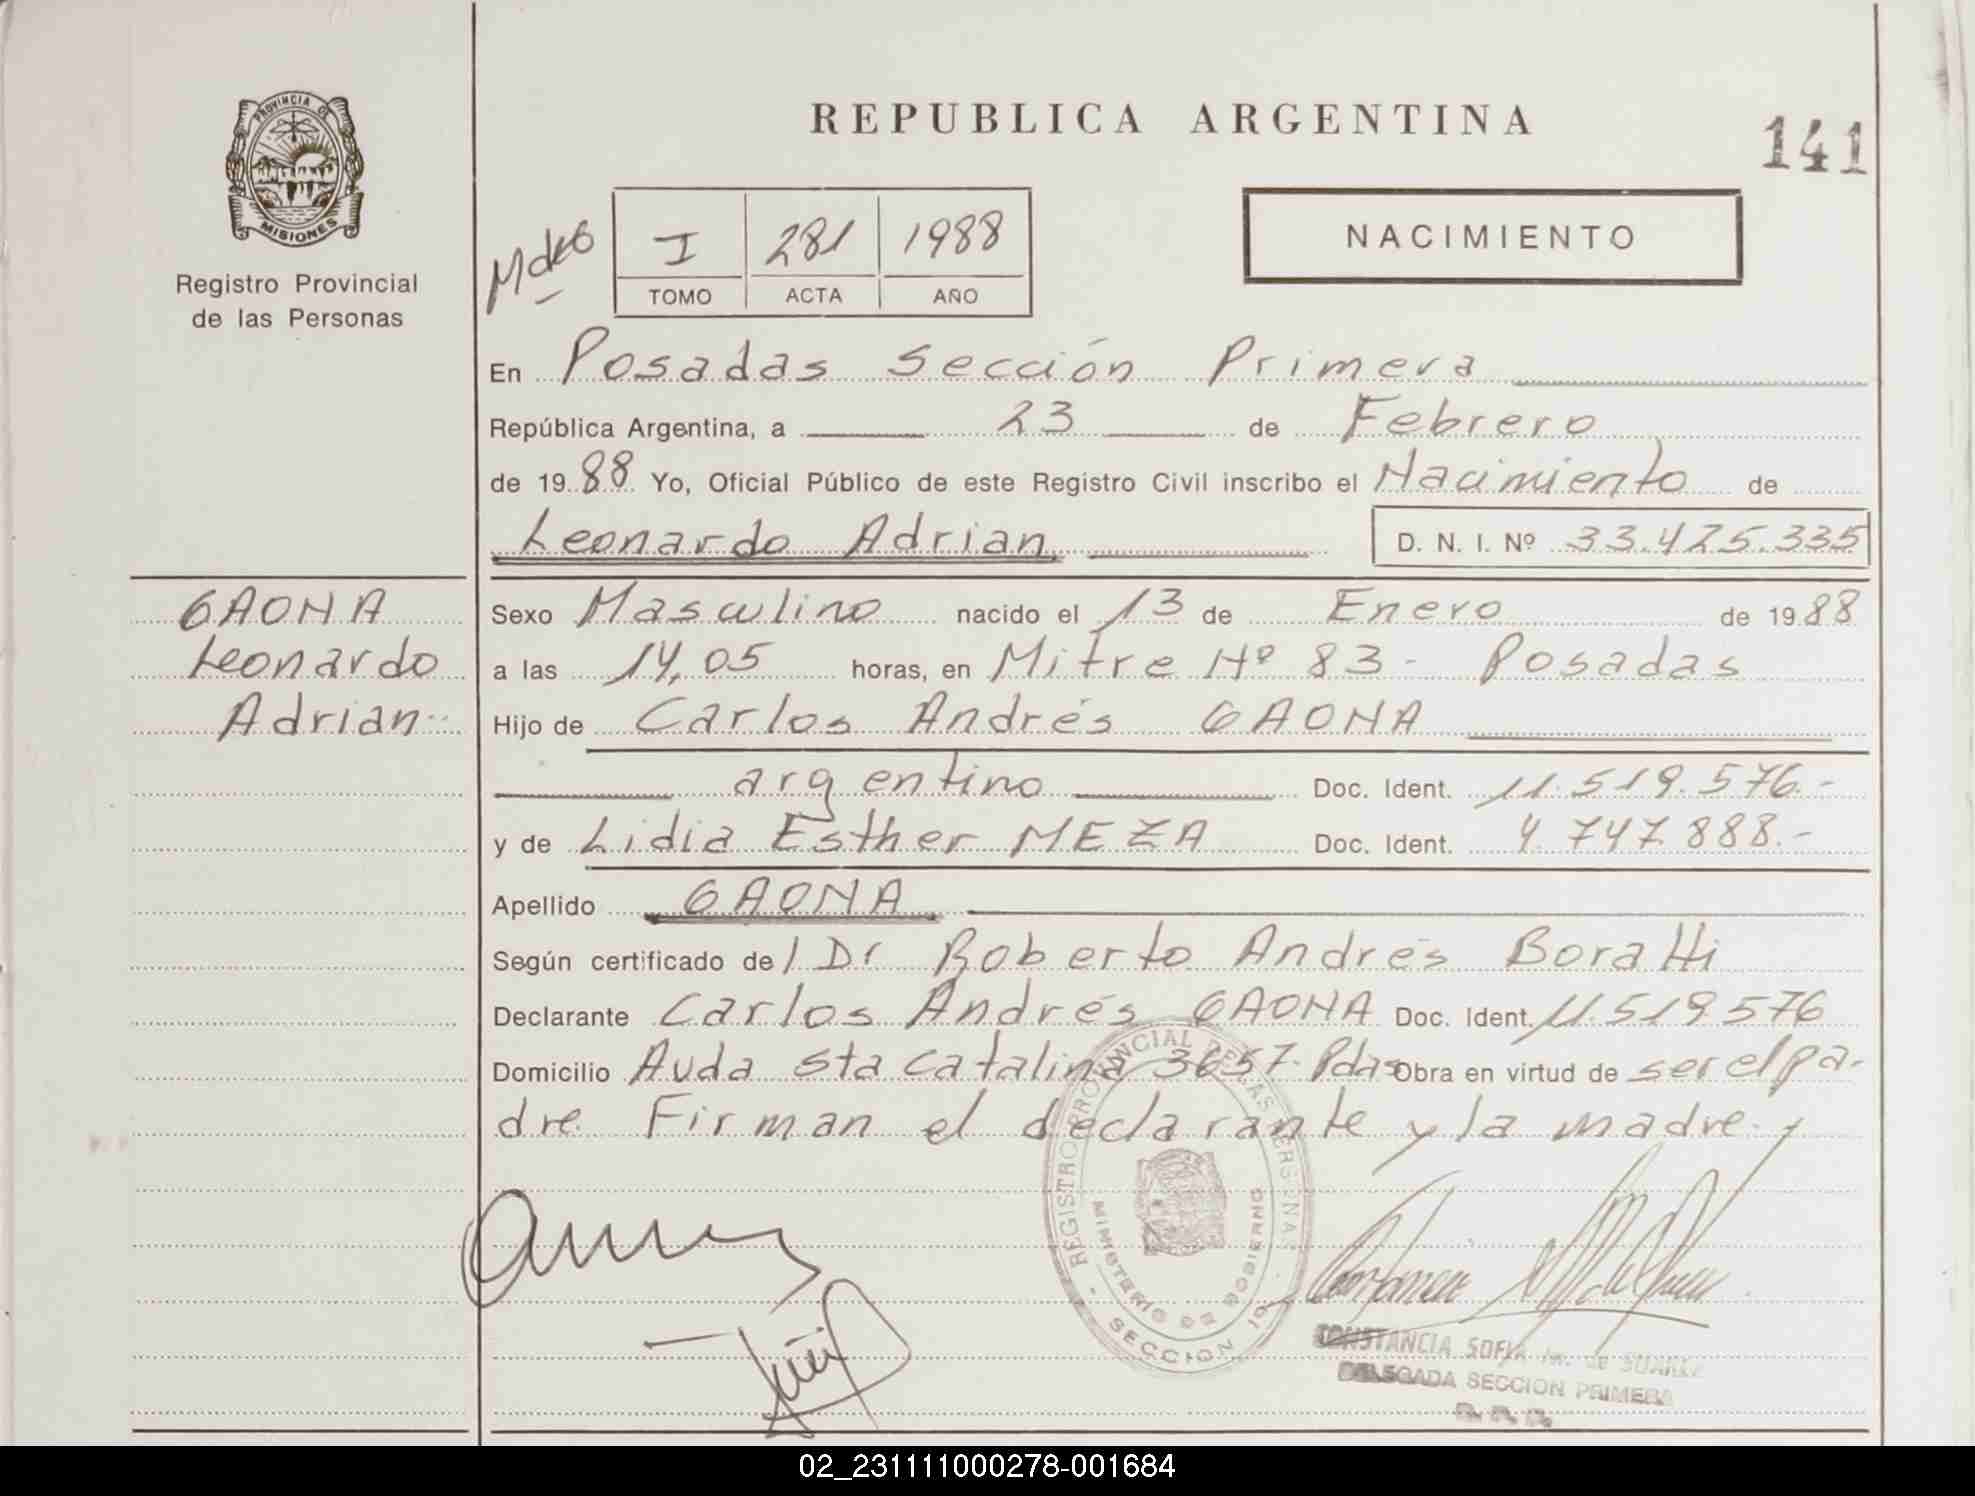 PROVINCIA DE
MISIONES
Registro Provincial
de las Personas
REPUBLICA ARGENTINA
141
I 281 1988
TOMO ACTA AÑO
NACIMIENTO
En Posadas Sección Primera
República Argentina, a 23 de Febrero
de 1988 Yo, Oficial Público de este Registro Civil inscribo el Nacimiento de
Leonardo Adrian D. N. I. Nº 33.425.335
GAONA
Leonardo
Adrian
Sexo Masculino nacido el 13 de Enero de 1988
a las 14,05 horas, en Mitre Nº 83 - Posadas
Hijo de Carlos Andrés GAONA
argentino Doc. Ident. 11.519.576.-
y de Lidia Esther MEZA Doc. Ident. 4.747.888.-
Apellido GAONA
Según certificado del Dr Roberto Andrés Boratti
Declarante Carlos Andrés GAONA Doc. Ident. 11.519.576
Domicilio Avda Sta Catalina 3657. Pdas Obra en virtud de ser el pa-
dre. Firman el declarante y la madre.
REGISTRO PROVINCIAL DE LAS PERSONAS
MINISTERIO DE GOBIERNO
SECCION 1º
CONSTANCIA SOFIA de SUAREZ
DELEGADA SECCION PRIMERA
02_231111000278-001684